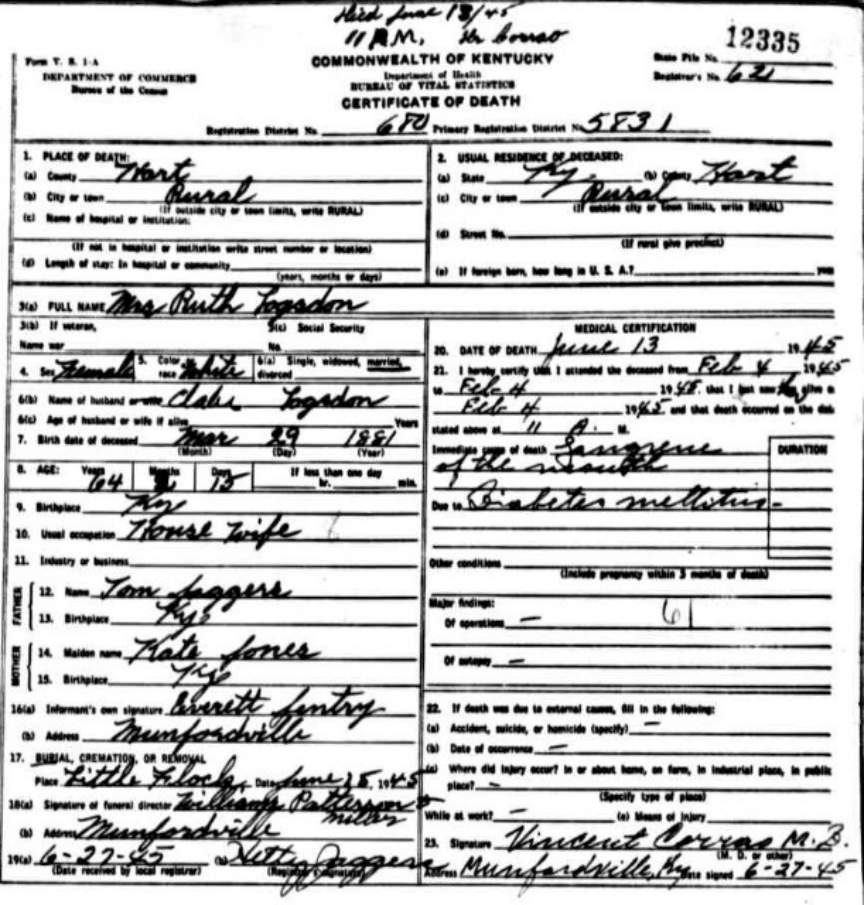 Died June 13/45
11 A.M. Dr Corrao
12335
Form V. S. 1-A
DEPARTMENT OF COMMERCE
Bureau of the Census
COMMONWEALTH OF KENTUCKY
Department of Health
BUREAU OF VITAL STATISTICS
CERTIFICATE OF DEATH
State File No.
Registrar's No. 621
Registration District No. 680 Primary Registration District No. 5831
1. PLACE OF DEATH:
(a) County Hart
(b) City or town Rural
(If outside city or town limits, write RURAL)
(c) Name of hospital or institution:
(If not in hospital or institution write street number or location)
(d) Length of stay: In hospital or community
(years, months or days)
2. USUAL RESIDENCE OF DECEASED:
(a) State Ky. (b) County Hart
(c) City or town Rural
(If outside city or town limits, write RURAL)
(d) Street No.
(If rural give precinct)
(e) If foreign born, how long in U. S. A.? years
3(a) FULL NAME Mrs Ruth Logsdon
3(b) If veteran,
Name war
3(c) Social Security
No.
4. Sex Female 5. Color or race White 6(a) Single, widowed, married, divorced
6(b) Name of husband or wife Logsdon
6(c) Age of husband or wife if alive Years
7. Birth date of deceased Mar 29 1881
(Month) (Day) (Year)
8. AGE: Years 64 Months 2 Days 15 If less than one day
hr. min.
9. Birthplace Ky
10. Usual occupation House wife
11. Industry or business
FATHER
12. Name Tom Jaggers
13. Birthplace Ky
MOTHER
14. Maiden name Kate Jones
15. Birthplace Ky
16(a) Informant's own signature Everett Gentry
(b) Address Munfordville
17. BURIAL, CREMATION, OR REMOVAL
Place Little Flock, Date June 15, 1945
18(a) Signature of funeral director Williams Patterson &
Miller
(b) Address Munfordville
19(a) 6-27-45 (b) Hetty Jaggers
(Date received by local registrar) (Registrar's signature)
MEDICAL CERTIFICATION
20. DATE OF DEATH June 13 1945
21. I hereby certify that I attended the deceased from Feb 4 1945
to Feb 4 1945. that I last saw her alive on
Feb 4 1945 and that death occurred on the date
stated above at 11 A. M.
Immediate cause of death Gangrene
of the mouth
DURATION
Due to Diabetes mellitus-
Other conditions
(Include pregnancy within 3 months of death)
Major findings: 61
Of operations —
Of autopsy —
22. If death was due to external causes, fill in the following:
(a) Accident, suicide, or homicide (specify) —
(b) Date of occurrence —
(c) Where did injury occur? In or about home, on farm, in industrial place, in public
place? —
(Specify type of place)
While at work? — (e) Means of Injury
23. Signature Vincent Corrao M.D.
(M. D. or other)
Address Munfordville, Ky Date signed 6-27-45